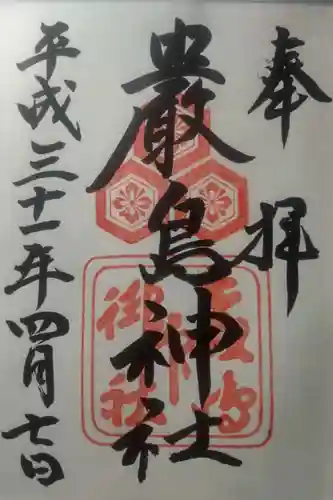 奉拝
嚴島神社
平成三十一年四月十七日
嚴島
神
御社